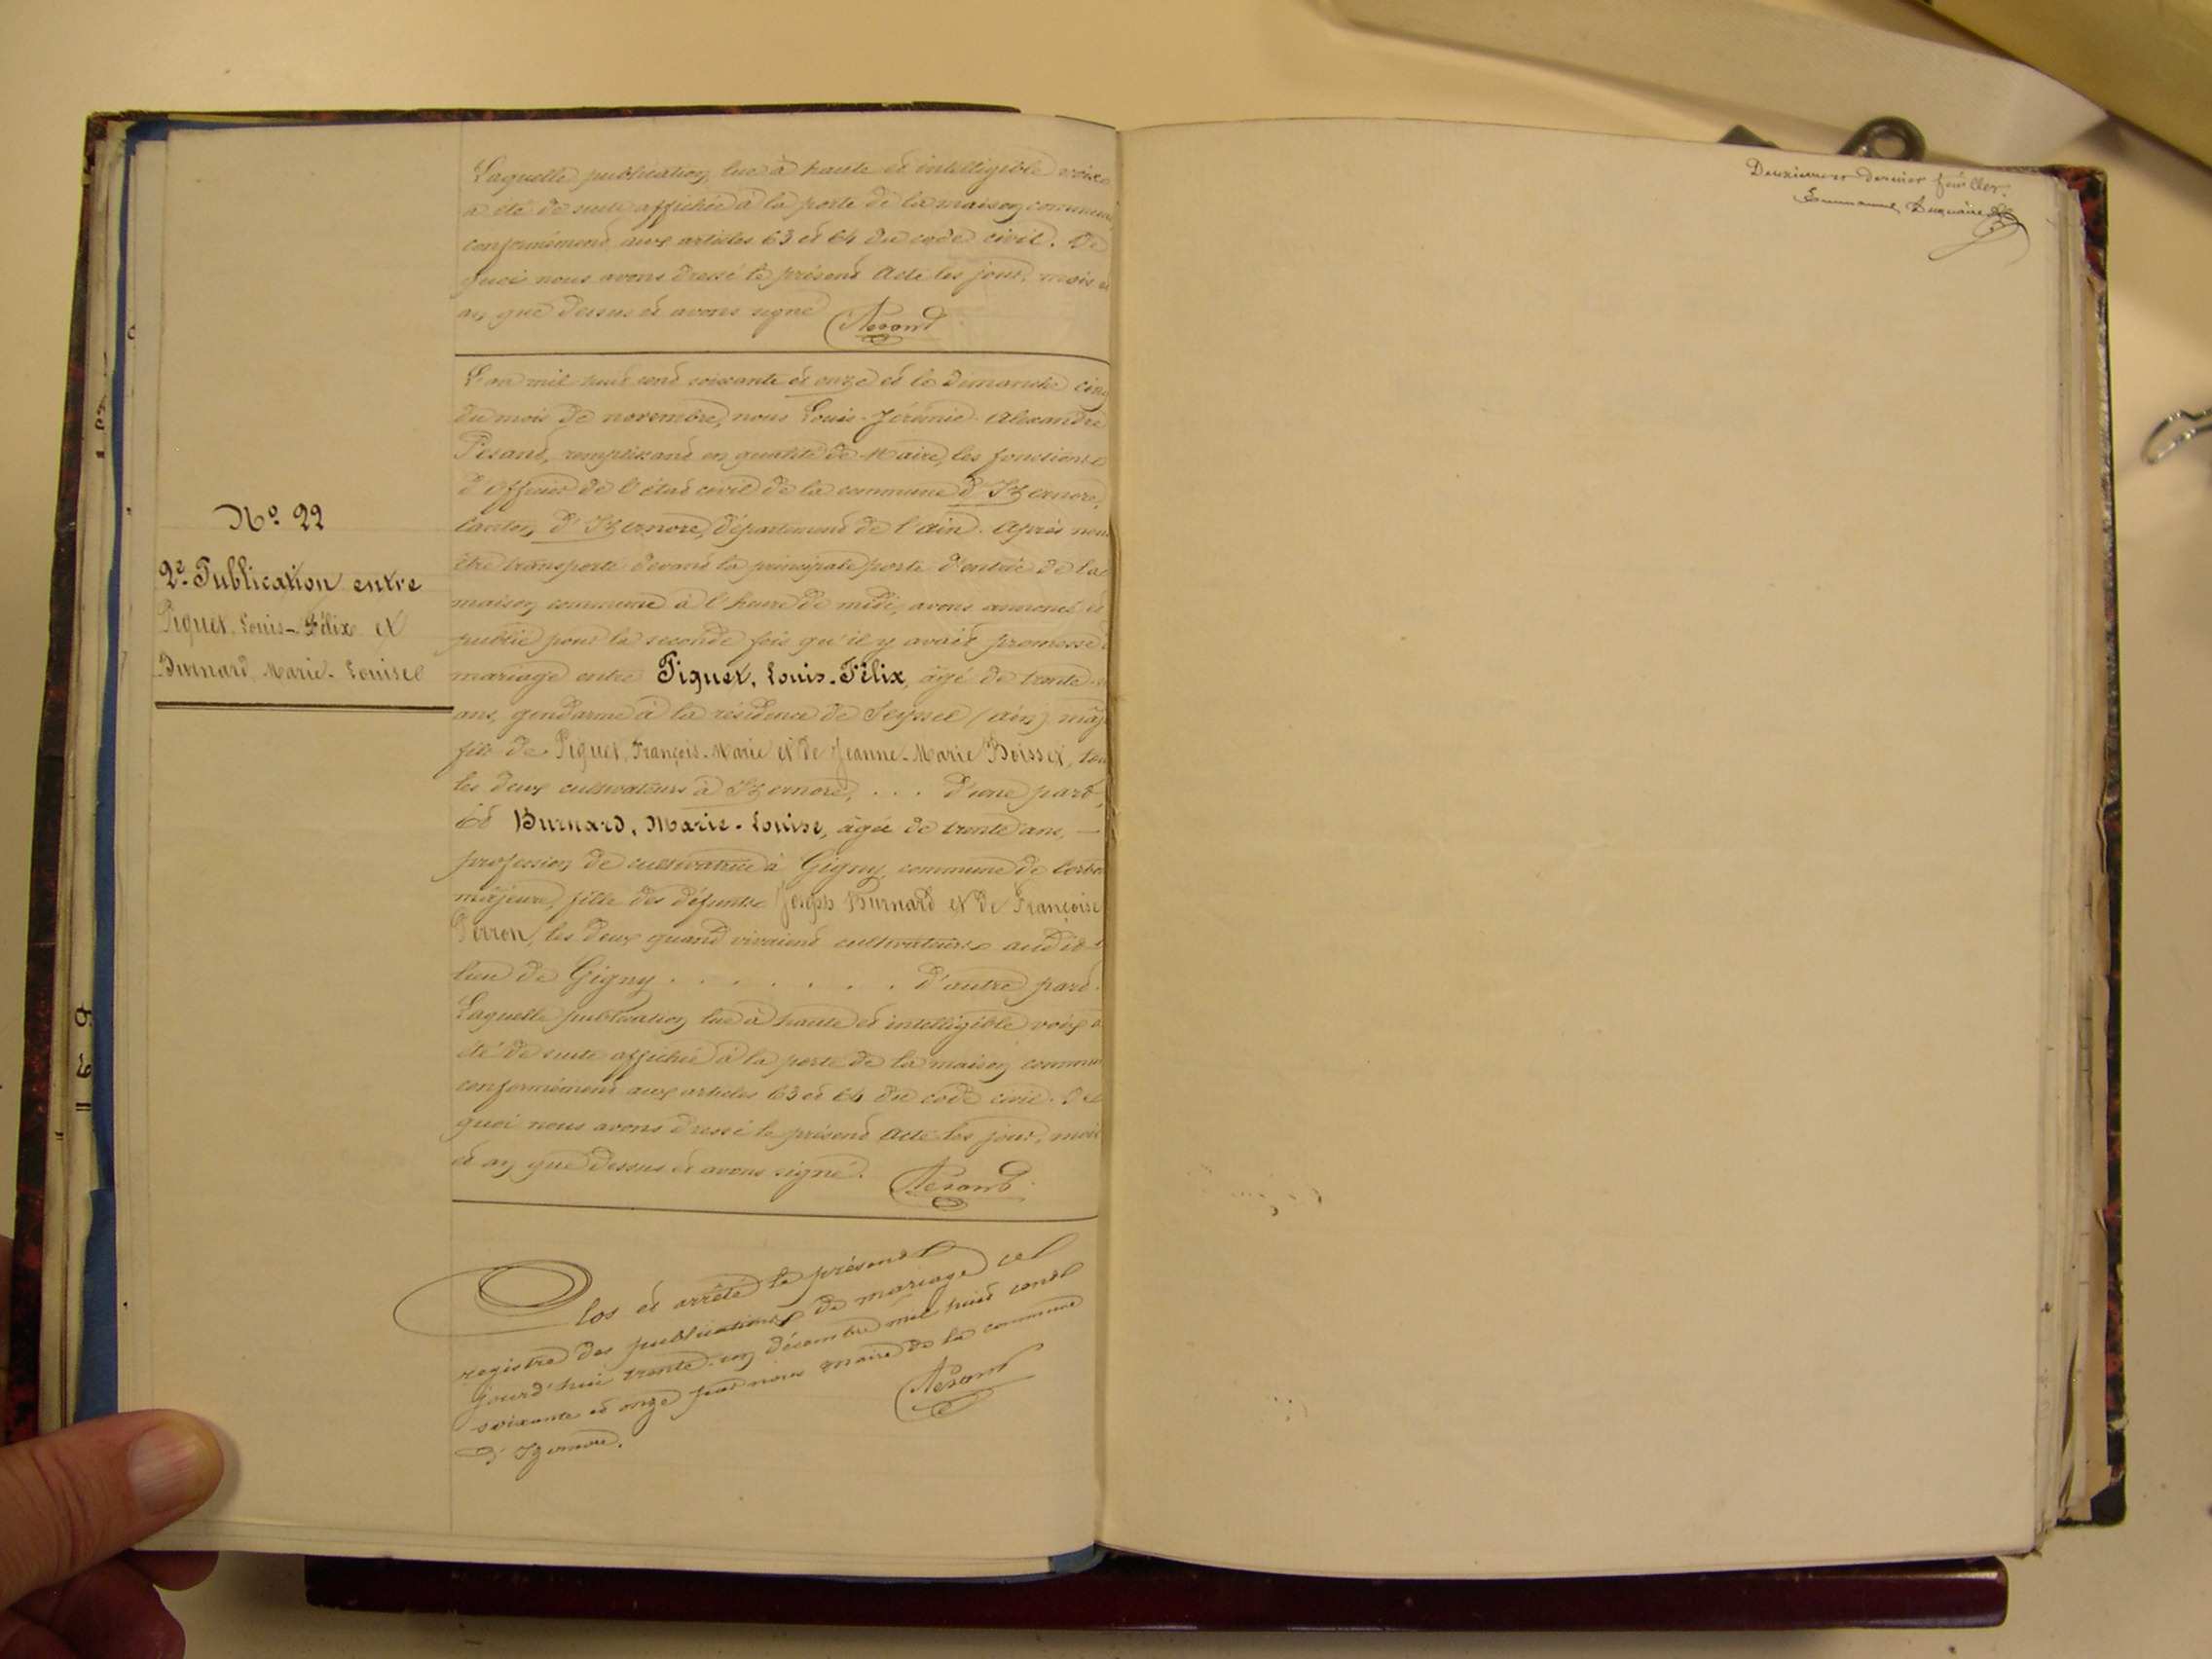 Laquelle publication, lue à haute et intelligible voix
a été de suite affichée à la porte de la maison commune
conformément aux articles 63 et 64 du code civil. De
quoi nous avons dressé le présent Acte les jour, mois et
an que dessus et avons signé
L'an mil huit cent soixante et onze et le dimanche cinq
du mois de novembre, nous Louis-Jérémie-Alexandre
Pesand, remplissant en qualité de Maire, les fonctions
d'officier de l'état civil de la commune d'Izernore,
canton d'Izernore, département de l'ain. Après nous
être transporté devant la principale porte d'entrée de la
maison commune à l'heure de midi, avons annoncé et
publié pour la seconde fois qu'il y avait promesse
mariage entre Piquet, Louis-Félix, âgé de trente
ans, gendarme à la résidence de Seyssel (ain) maj
fils de Piquet, François-Marie et de Jeanne-Marie Boisset, tous
les deux cultivateurs à Izernore, . . . d'une part,
Et Burnard, Marie-Louise, âgée de trente ans, —
profession de cultivatrice à Gigny, commune de
majeure, fille des défunts Joseph Burnard et de Françoise
Perron, les deux quand vivaient cultivateurs audit
lieu de Gigny . . . . . . . d'autre part.
Laquelle publication lue à haute et intelligible voix a
été de suite affichée à la porte de la maison commune
conformément aux articles 63 et 64 du code civil. De
quoi nous avons dressé le présent Acte les jour, mois
et an que dessus et avons signé.
Clos et arrêté le présent
registre des publications de mariage cel
jourd'hui trente-un décembre mil huit cent
soixante et onze par nous maire de la commune
d'Izernore.
No. 22
2e. Publication entre
Piquet, Louis-Félix et
Burnard, Marie-Louise
Deuxième et dernier feuillet.